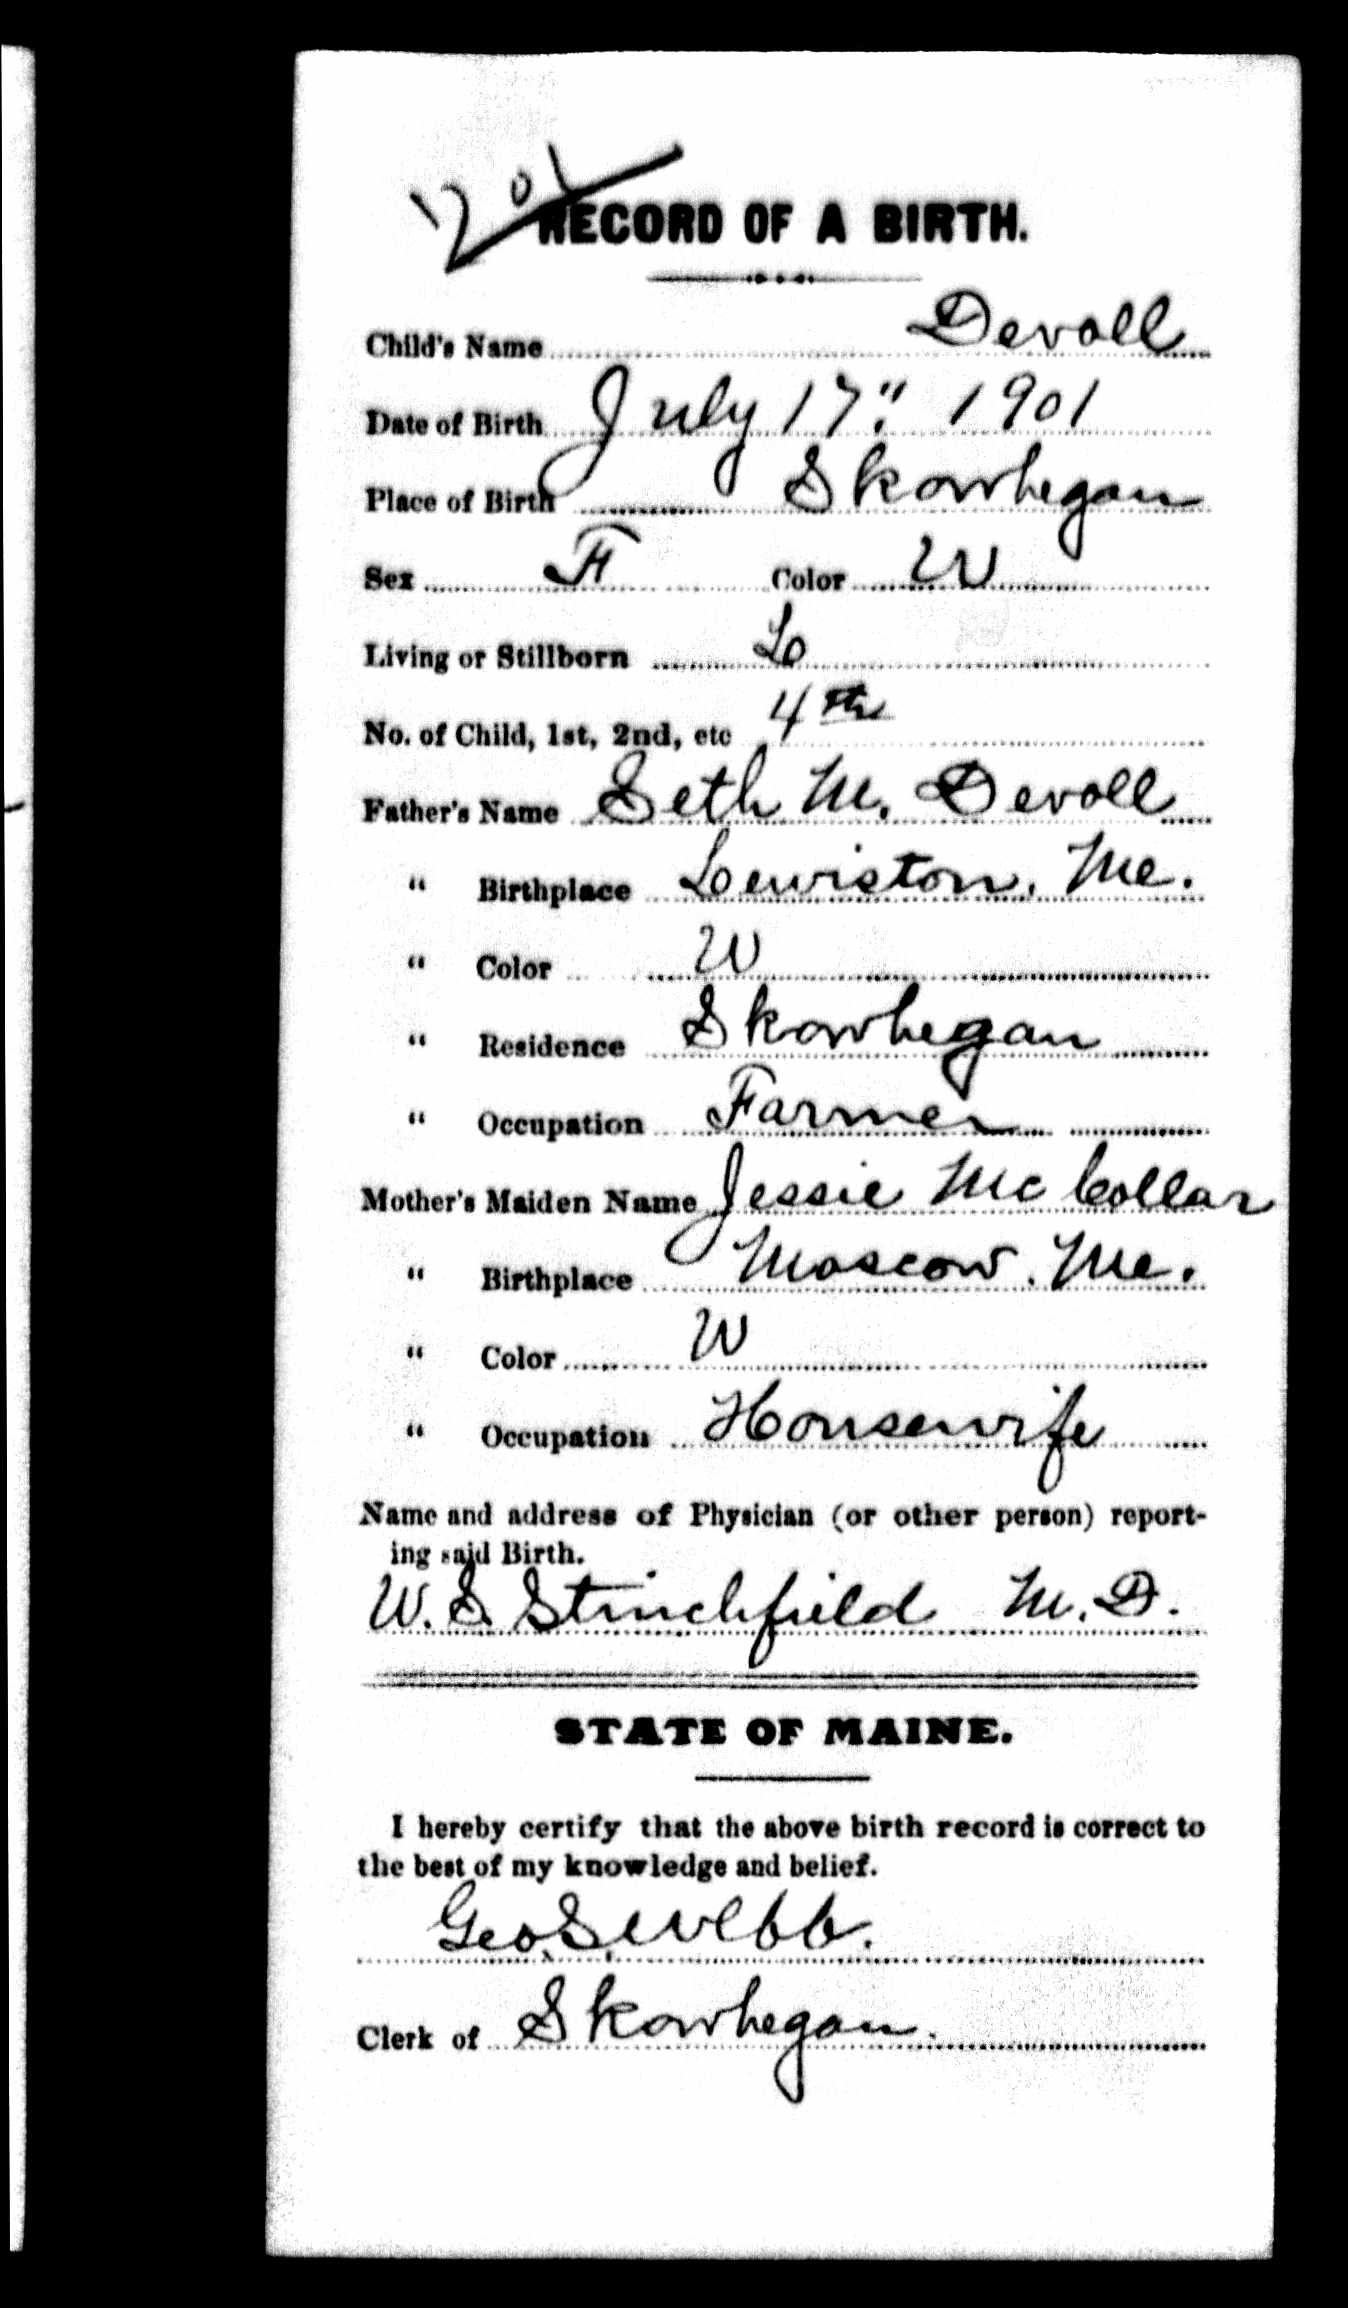 RECORD OF A BIRTH.
Child's Name Devoll
Date of Birth July 17" 1901
Place of Birth Skowhegan
Sex F Color W
Living or Stillborn L
No. of Child, 1st, 2nd, etc 4th
Father's Name Seth M. Devoll
" Birthplace Lewiston, Me.
" Color W
" Residence Skowhegan
" Occupation Farmer
Mother's Maiden Name Jessie McCollar
" Birthplace Moscow, Me.
" Color W
" Occupation Housewife
Name and address of Physician (or other person) report-
ing said Birth.
W. S. Stinchfield M.D.
STATE OF MAINE.
I hereby certify that the above birth record is correct to
the best of my knowledge and belief.
Geo. S. Webb.
Clerk of Skowhegan.